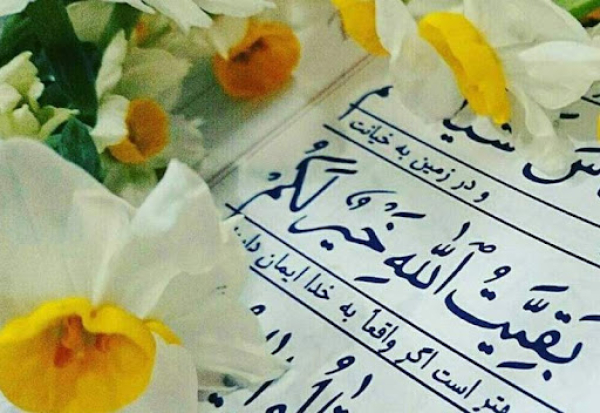 و در زمین به خیانت
بَقِيَّتُ اللّٰهِ خَيْرٌ لَكُمْ
است اگر واقعاً به خدا ایمان